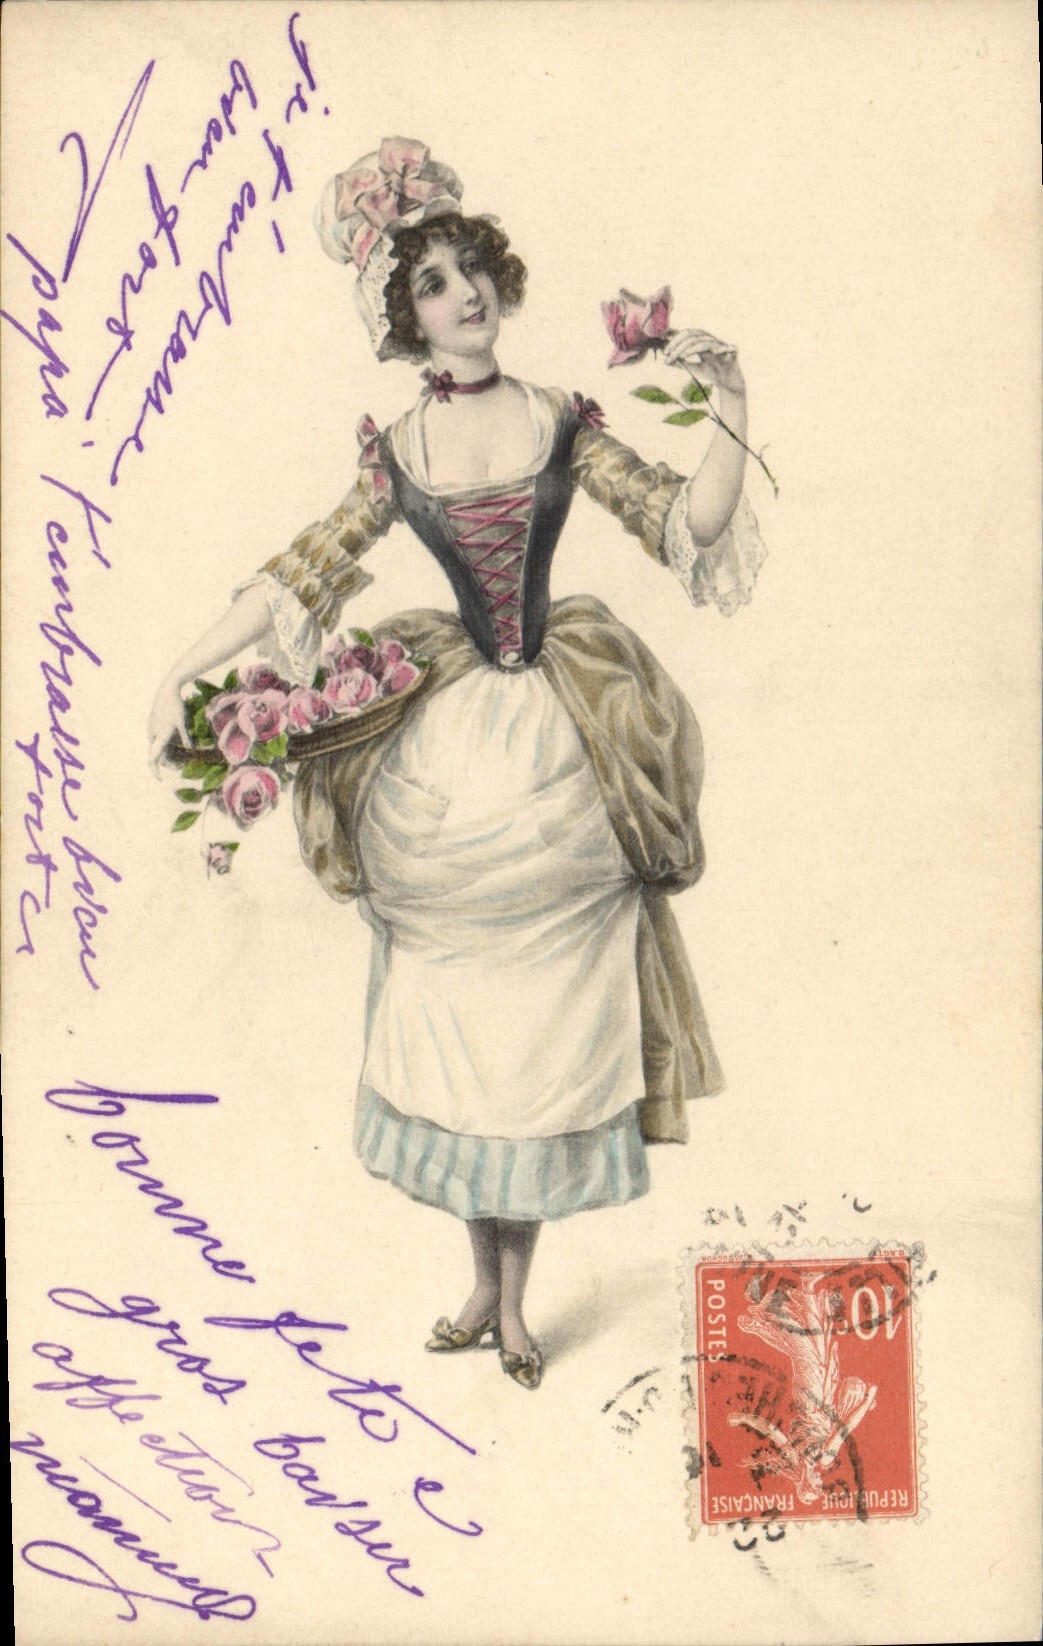 je t'embrasse
bien fort
papa t'embrasse bien
forte
bonne fete
gros baiser
affection
10c
POSTES
REPUBLIQUE FRANÇAISE